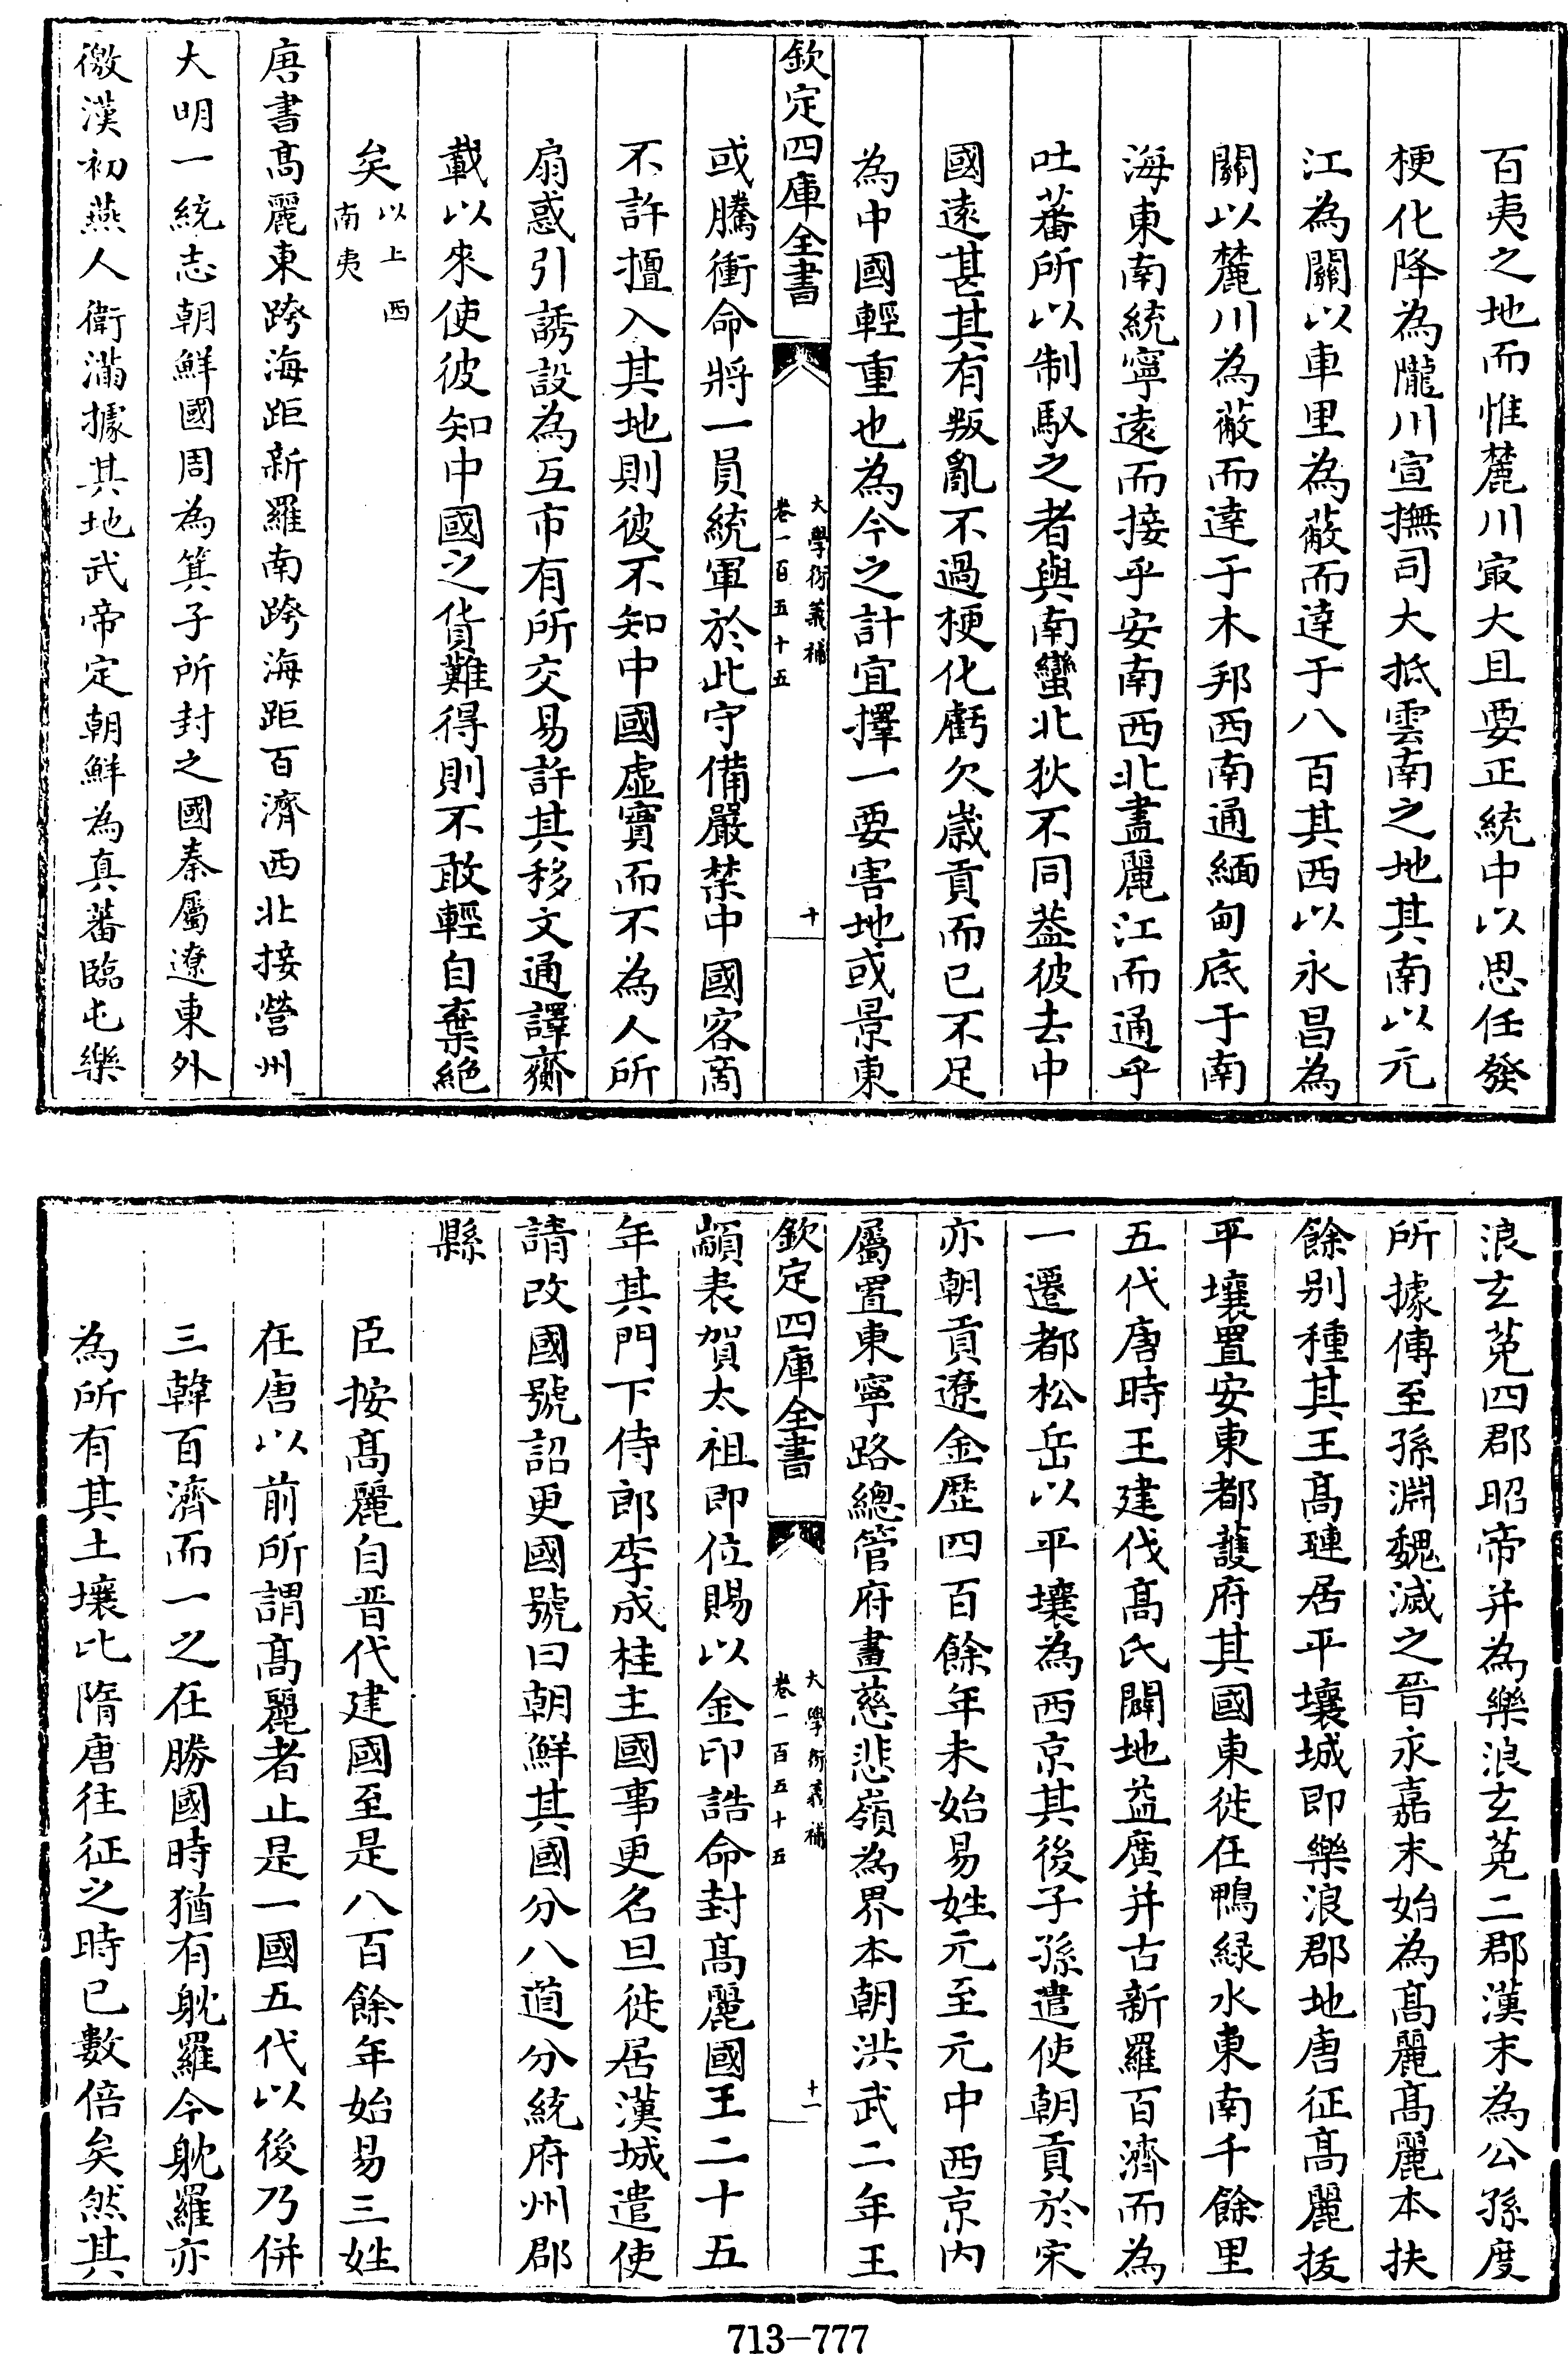 百夷之地而惟麓川㝡大且要正統中以思任發
梗化降為隴川宣撫司大抵雲南之地其南以元
江為關以車里為蔽而達于八百其西以永昌為
關以麓川為蔽而達于木邦西南通緬甸底于南
海東南統寧遠而接乎安南西北盡麗江而通乎
吐蕃所以制馭之者與南蠻北狄不同葢彼去中
國逺甚其有叛亂不過梗化虧欠歲貢而已不足
為中國輕重也為今之計宜擇一要害地或景東
欽定四庫全書
大學衍義補
卷一百五十五
十
或騰衝命將一員統軍於此守備嚴禁中國客商
不許擅入其地則彼不知中國虛實而不為人所
扇惑引誘設為互市有所交易許其移文通譯齎
載以來使彼知中國之貨難得則不敢輕自棄絶
矣以上西
南夷
唐書髙麗東跨海距新羅南跨海距百濟西北接營州
大明一統志朝鮮國周為箕子所封之國秦屬遼東外
徼漢初燕人衛滿據其地武帝定朝鮮為真蕃臨屯樂
浪玄菟四郡昭帝并為樂浪玄菟二郡漢末為公孫度
所據傳至孫淵魏滅之晉永嘉末始為髙麗髙麗本扶
餘别種其王髙璉居平壤城即樂浪郡地唐征髙麗拔
平壤置安東都䕶府其國東徙在鴨緑水東南千餘里
五代唐時王建代髙氏闢地益廣并古新羅百濟而為
一遷都松岳以平壤為西京其後子孫遣使朝貢於宋
亦朝貢遼金歴四百餘年未始易姓元至元中西京内
屬置東寧路總管府畫慈悲嶺為界本朝洪武二年王
欽定四庫全書
大學衍義補
卷一百五十五
十一
顓表賀太祖即位賜以金印誥命封髙麗國王二十五
年其門下侍郎李成桂主國事更名旦徙居漢城遣使
請改國號詔更國號曰朝鮮其國分八道分統府州郡
縣
臣按髙麗自晋代建國至是八百餘年始易三姓
在唐以前所謂髙麗者止是一國五代以後乃併
三韓百濟而一之在勝國時猶有躭羅今躭羅亦
為所有其土壤比隋唐往征之時已數倍矣然其
713-777